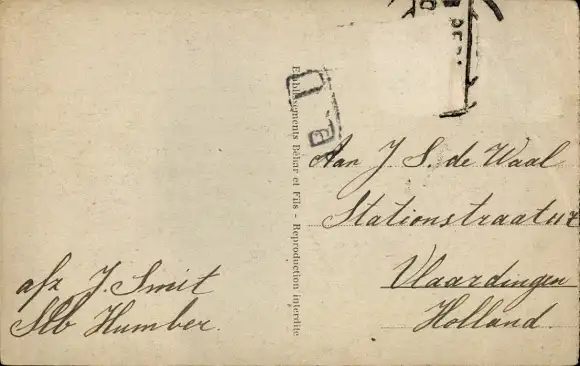 Etablissements Béhar et Fils - Reproduction interdite
Aan J S. de Waal
Vlaardingen
Holland
afz J. Smit
Slb Humber.